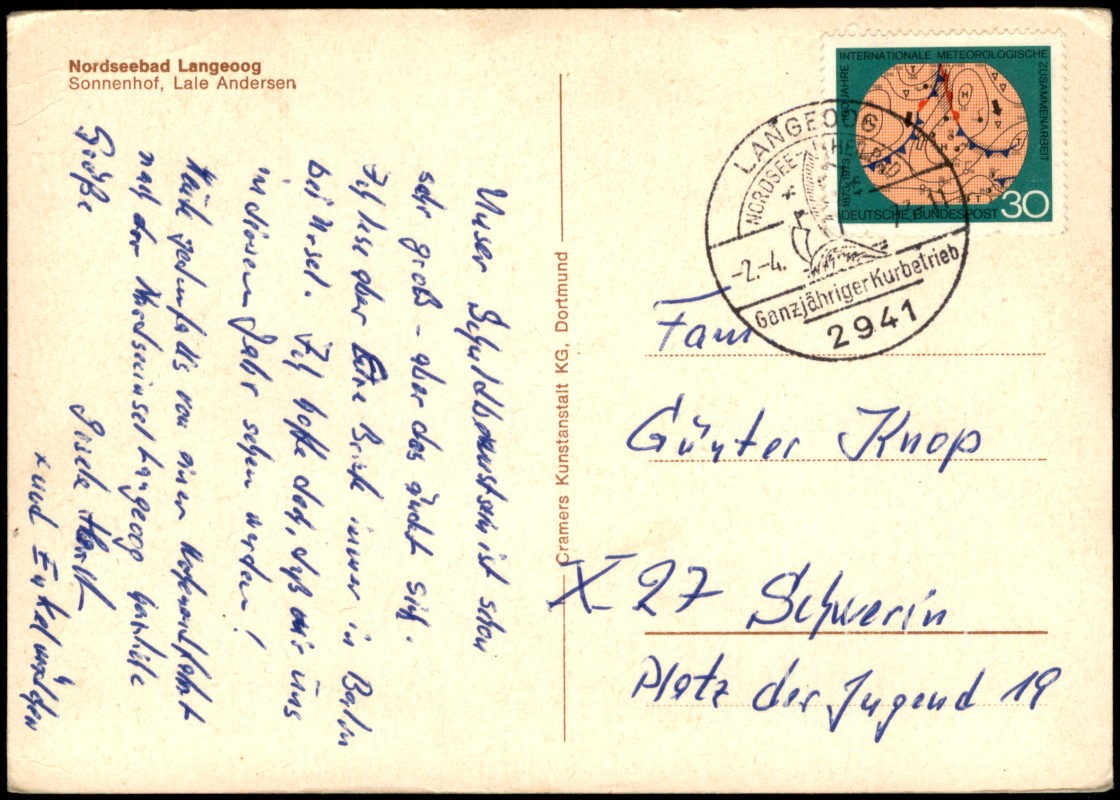 Nordseebad Langeoog
Sonnenhof, Lale Andersen
Unser Schuldbewußtsein ist schon
sehr groß – aber das juckt sich.
Ich lese aber Eure Briefe immer in Berlin
bei Ursel. Ich hoffe doch, daß wir uns
in diesem Jahr sehen werden!
Heute jedenfalls von einer
nach der Nordseeinsel Langeoog
Grüße
Gisela Horst
x und Enkel
Cramers Kunstanstalt KG, Dortmund
100 JAHRE INTERNATIONALE METEOROLOGISCHE ZUSAMMENARBEIT
1873-1973
DEUTSCHE BUNDESPOST 30
LANGEOOG
NORDSEEHEILBAD
-2.-4.
Ganzjähriger Kurbetrieb
2941
Fam
Günter Knop
X-27 Schwerin
Platz der Jugend 19